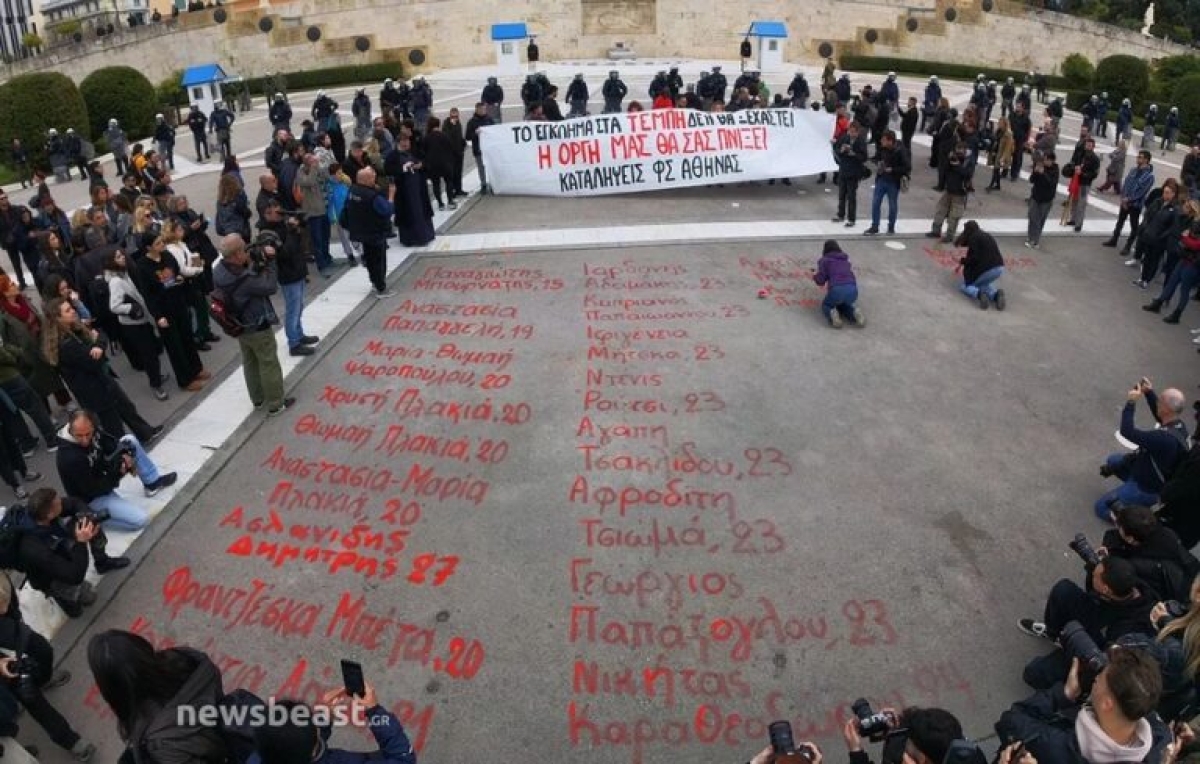 ΤΟ ΕΓΚΛΗΜΑ ΣΤΑ ΤΕΜΠΗ ΔΕΝ ΘΑ ΞΕΧΑΣΤΕΙ
Η ΟΡΓΗ ΜΑΣ ΘΑ ΣΑΣ ΠΝΙΞΕΙ
ΚΑΤΑΛΗΨΕΙΣ ΦΣ ΑΘΗΝΑΣ
Παναγιώτης
Μπουρνάζης, 15
Αναστασία
Παπαγγελή, 19
Μαρία-Θωμαή
Ψαροπούλου, 20
Χρυσή Πλακιά, 20
Θωμαή Πλακιά, 20
Αναστασία-Μαρία
Πλακιά, 20
Ασλανίδης
Δημήτρης 27
Φραντζέσκα Μπέζα, 20
Ιορδάνης
Αδαμάκης, 23
Κυπριανός
Παπαιωάννου, 23
Ιφιγένεια
Μήτσκα, 23
Ντενις
Ρούτσι, 23
Αγάπη
Τσακλίδου, 23
Αφροδίτη
Τσιωμά, 23
Γεώργιος
Παπάζογλου, 23
Νικήτας
Καραθεοδώρου
newsbeast.GR